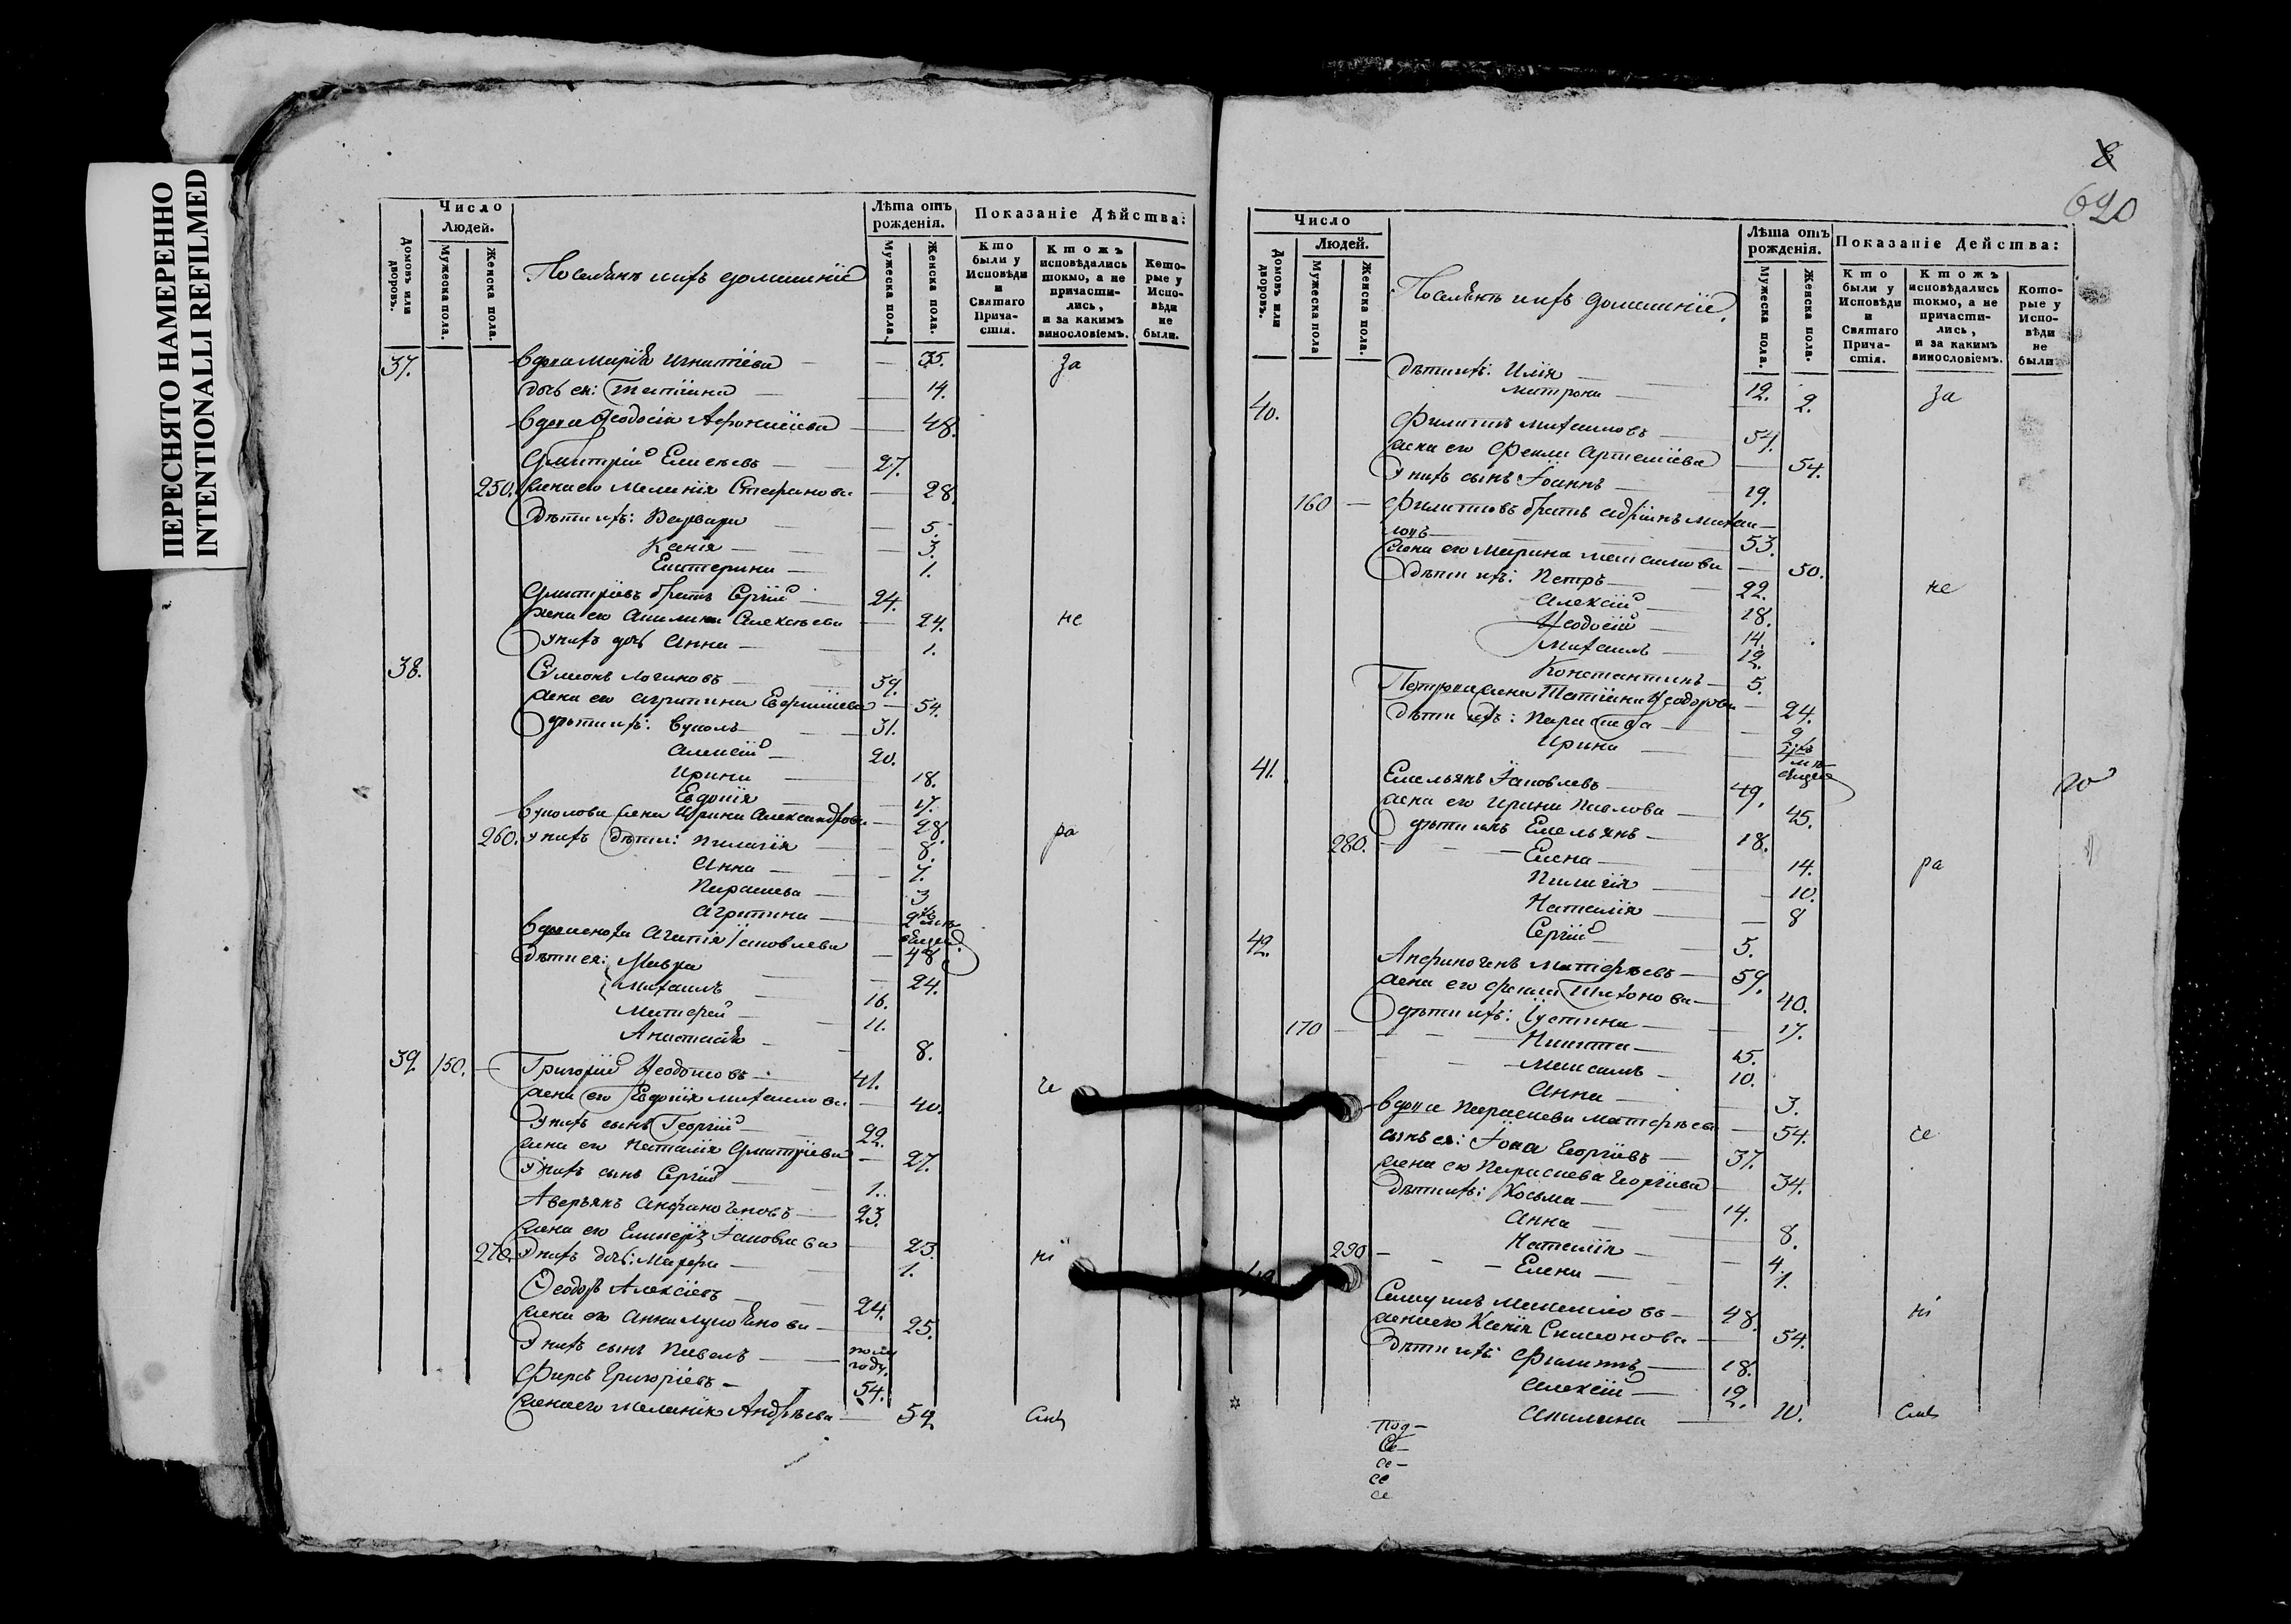 ПЕРЕСНЯТО НАМЕРЕННО
INTENTIONALLI REFILMED
Число
Людей.
Домовъ или дворовъ.
Мужеска пола.
Женска пола.
Поселянъ ихъ домашніе
Лѣта отъ рожденія.
Мужеска пола.
Женска пола.
Показаніе Дѣйства:
Кто были у Исповѣди и Святаго Прича-стія.
Ктожъ исповѣдались токмо, а не причасти-лись, и за какимъ винословіемъ.
Кото-рые у Испо-вѣди не были.
37. вдова Марія Игнатіева — 35. За
дочь ея: Татіана — 14.
вдова Ѳеодосія Афонасіева — 48.
Дмитрій Елисѣевъ — 27.
250. жена его Меланія Стефанова — 28.
Дѣти ихъ: Варвара — 5.
Ксенія — 3.
Екатерина — 1.
Дмитріевъ братъ Сергій — 24.
жена его Акилина Алексѣева — 24. не
У нихъ дочь Анна — 1.
38. Симеонъ Логиновъ — 59.
жена его Агрипина Евфиміева — 54.
дѣти ихъ: Вуколъ — 31.
Алексій — 20.
Ирина — 18.
Евдокія — 17.
Вуколова жена Ирина Александрова — 28.
260. У нихъ дѣти: Пелагія — 8. ра
Анна — 7.
Параскева — 3
Агрипина — 2хъ мѣ-сяцей
Агапія Іаковлева — 48
Дѣти ея: Мавра — 24.
Михаилъ — 16.
Матфей — 11.
Анастасія — 8.
39. 150. — Григорій Ѳеодотовъ — 41.
жена его Евдокія Михаилова — 40. че
У нихъ сынъ Георгій — 22.
жена его Наталія Дмитріева — 27.
У нихъ сынъ Сергій — 1.
Аверьянъ Анфиногеновъ — 23.
жена его Іаковлева — 23.
270. У нихъ дочь: Марфа — 1. ні
Ѳеодоръ Алексіевъ — 24.
жена его Анна — 25.
У нихъ сынъ Павелъ — полу году.
Фирсъ Григоріевъ — 54.
жена его Меланія Андрѣева — 52. емъ
8
620
Число
Людей.
Домовъ или дворовъ.
Мужеска пола
Женска пола.
Поселянъ ихъ домашніе.
Лѣта отъ рожденія.
Мужеска пола
Женска пола.
Показаніе Действа:
Кто были у Исповѣди и Святаго Прича-стія.
Ктожъ исповѣдались токмо, а не причасти-лись, и за какимъ винословіемъ.
Кото-рые у Испо-вѣди не были
дѣти ихъ: Илія — 12. За
Матрона — 2.
40. Филиппъ Михаиловъ — 54.
жена его Фекла Артеміева — 54.
У нихъ сынъ Іоаннъ — 19.
160 — Филиповъ братъ Адріанъ Михаи-
ловъ — 53.
жена его Марина Максимова — 50.
дѣти ихъ: Петръ — 22. не
Алексій — 18.
Ѳеодосій — 14.
Михаилъ — 12.
Константинъ — 5.
Петрова жена Татіана Ѳеодорова — 24.
Дѣти ихъ: Параскева — 2.
Ирина — мѣ-сяцей
41. Емельянъ Іаковлевъ — 49.
жена его Ирина Павлова — 45.
дѣти ихъ Емельянъ — 18.
280. — Елена — 14. ра
Пелагія — 10.
Наталія — 8
Сергій — 5.
42. Анфиногенъ Матфѣевъ — 59.
жена его Фекла Тихонова — 40.
дѣти ихъ: Іустина — 17.
170 — Никита — 15.
Максимъ — 10.
Анна — 3.
вдова Параскева Матфѣева — 54. че
сынъ ея: Іона Георгіевъ — 37.
жена его Параскева Георгіева — 34.
Дѣти ихъ: Косьма — 14.
Анна — 8.
290 — Наталія — 4.
Елена — 1.
Максимовъ — 48. ні
жена его Ксенія Симеонова — 54.
Дѣти ихъ: Филиппъ — 18.
Алексій — 12.
Акилина — 10. емъ